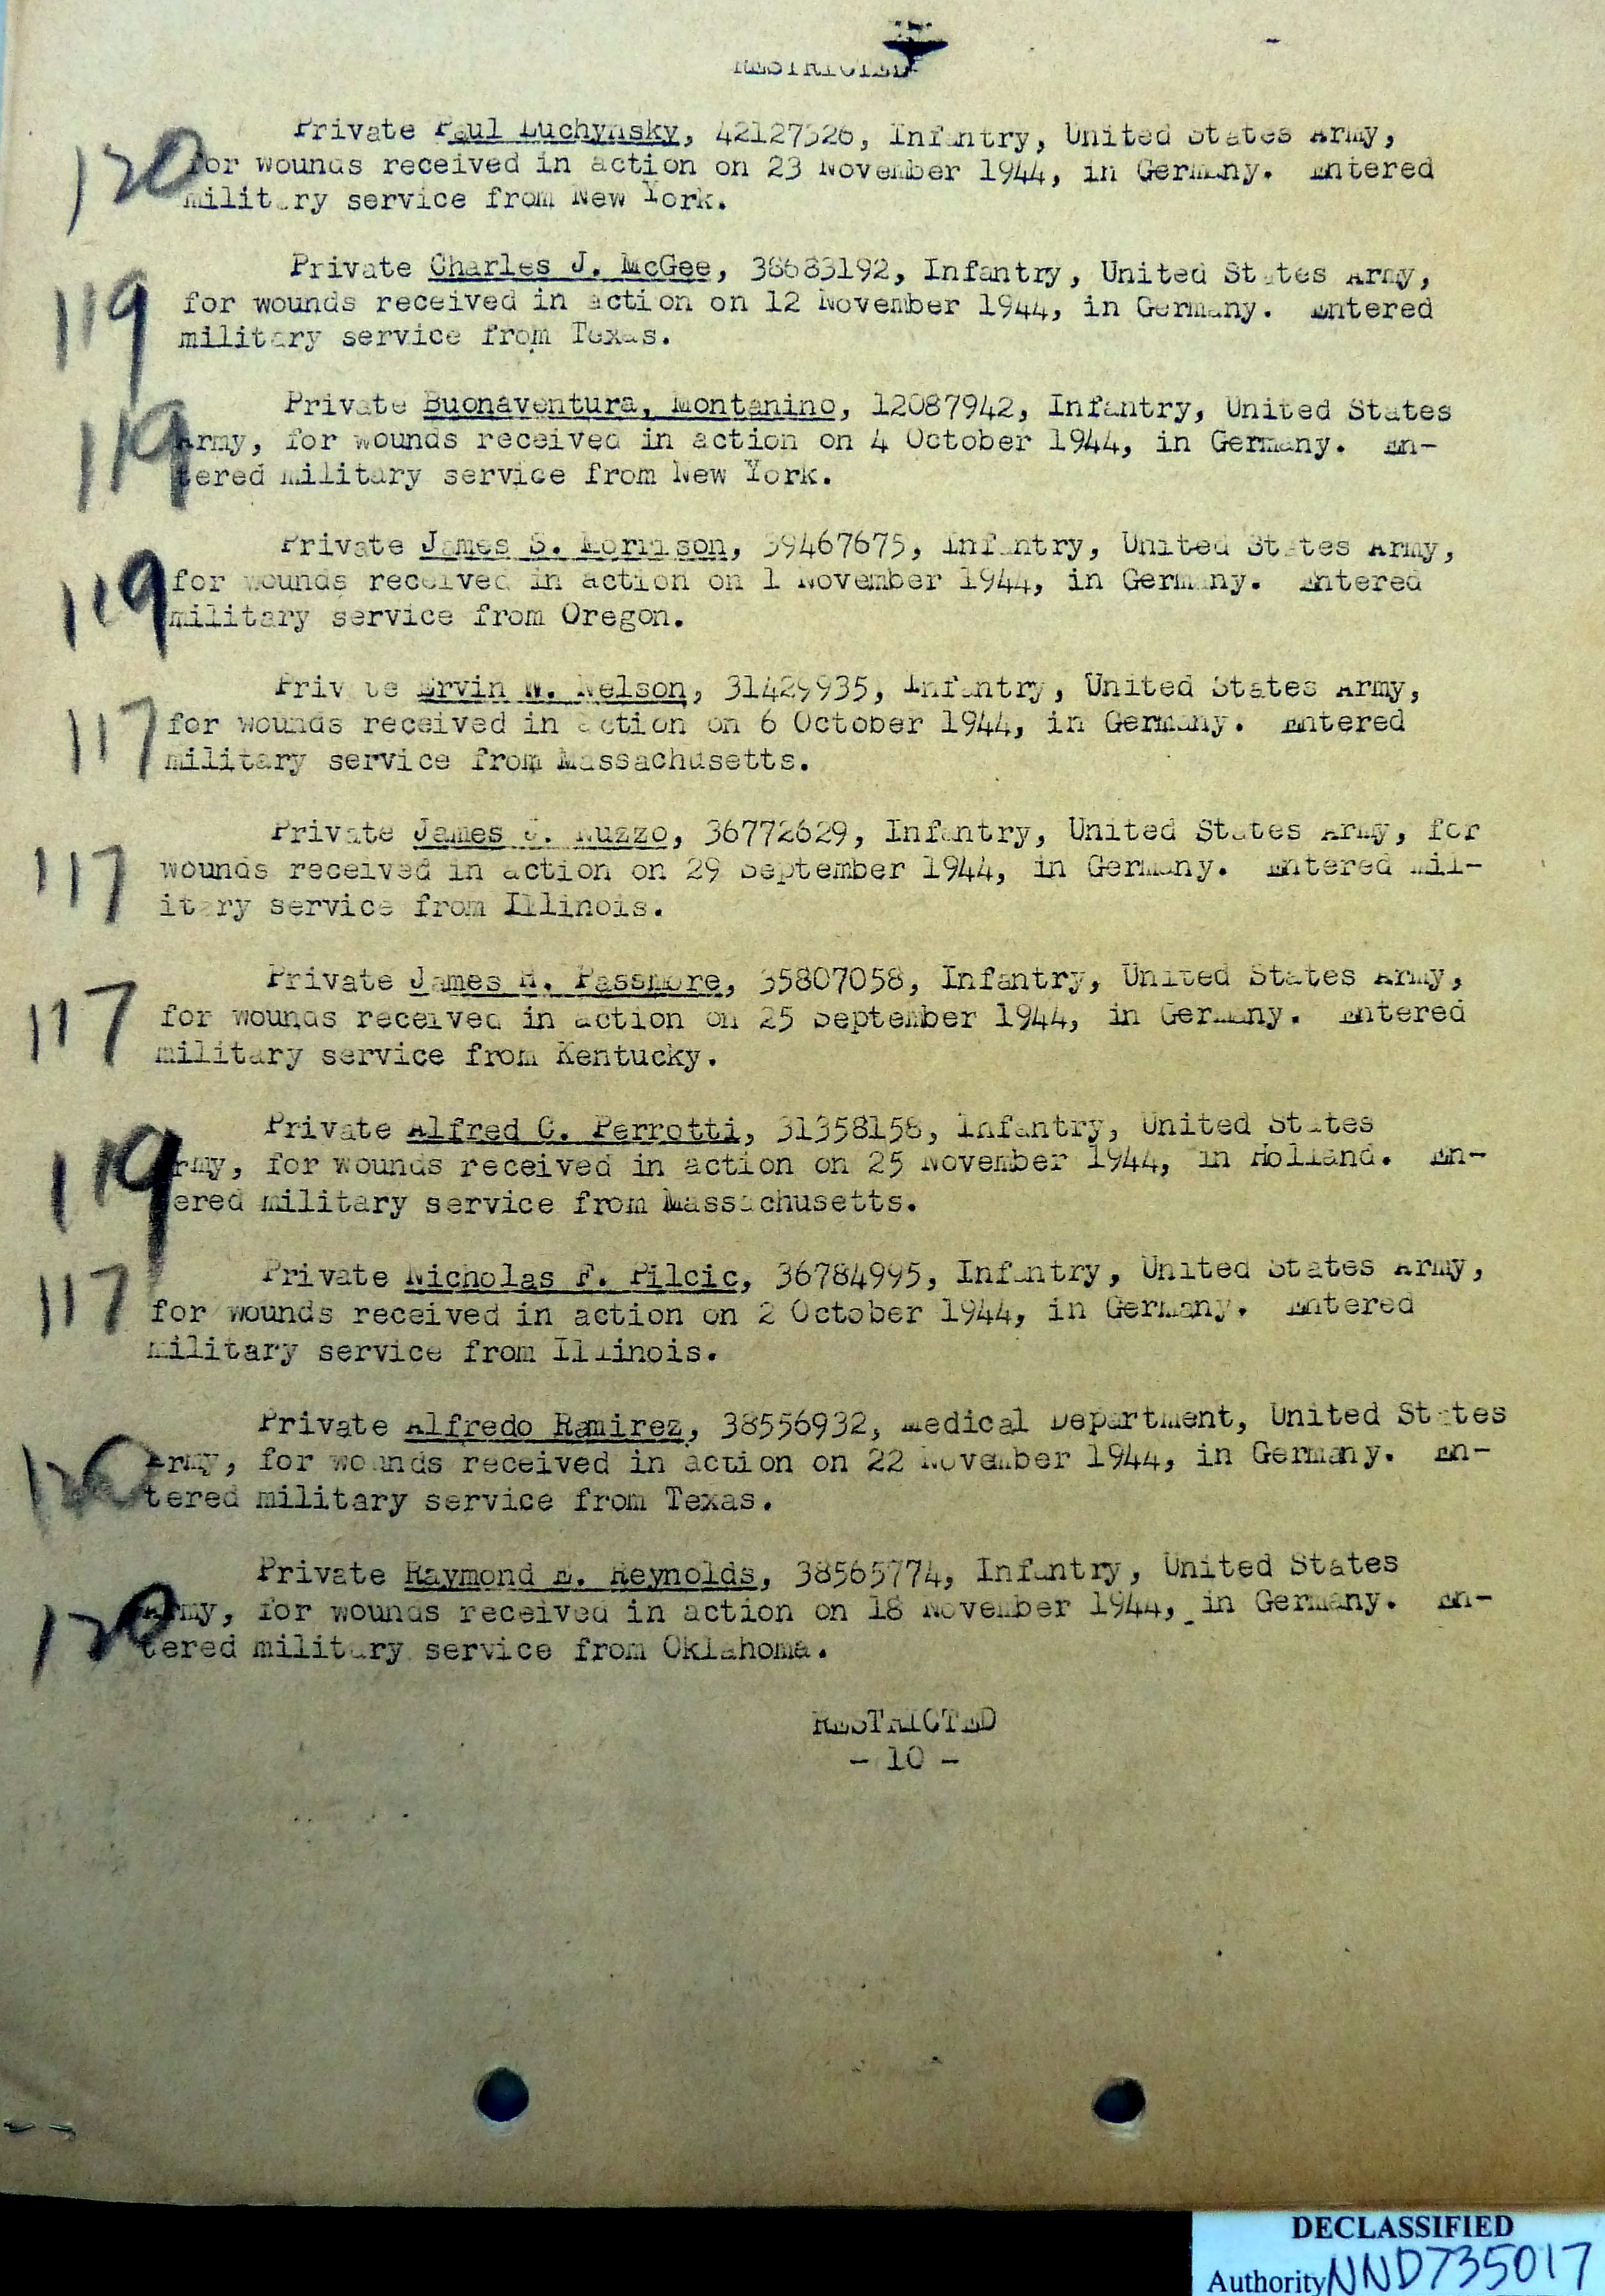 RESTRICTED
120
Private Paul Luchynsky, 42127526, Infantry, United States Army,
for wounds received in action on 23 November 1944, in Germany. Entered
military service from New York.
119
Private Charles J. McGee, 38683192, Infantry, United States Army,
for wounds received in action on 12 November 1944, in Germany. Entered
military service from Texas.
119
Private Buonaventura, Montanino, 12087942, Infantry, United States
Army, for wounds received in action on 4 October 1944, in Germany. En-
tered military service from New York.
119
Private James S. Morrison, 39467675, Infantry, United States Army,
for wounds received in action on 1 November 1944, in Germany. Entered
military service from Oregon.
117
Private Ervin W. Nelson, 31429935, Infantry, United States Army,
for wounds received in action on 6 October 1944, in Germany. Entered
military service from Massachusetts.
117
Private James J. Nuzzo, 36772629, Infantry, United States Army, for
wounds received in action on 29 September 1944, in Germany. Entered mil-
itary service from Illinois.
117
Private James H. Passmore, 35807058, Infantry, United States Army,
for wounds received in action on 25 September 1944, in Germany. Entered
military service from Kentucky.
119
Private Alfred C. Perrotti, 31358158, Infantry, United States
Army, for wounds received in action on 25 November 1944, in Holland. En-
tered military service from Massachusetts.
117
Private Nicholas F. Pilcic, 36784995, Infantry, United States Army,
for wounds received in action on 2 October 1944, in Germany. Entered
military service from Illinois.
120
Private Alfredo Ramirez, 38556932, Medical Department, United States
Army, for wounds received in action on 22 November 1944, in Germany. En-
tered military service from Texas.
120
Private Raymond E. Reynolds, 38565774, Infantry, United States
Army, for wounds received in action on 18 November 1944, in Germany. En-
tered military service from Oklahoma.
RESTRICTED
- 10 -
DECLASSIFIED
Authority NND735017